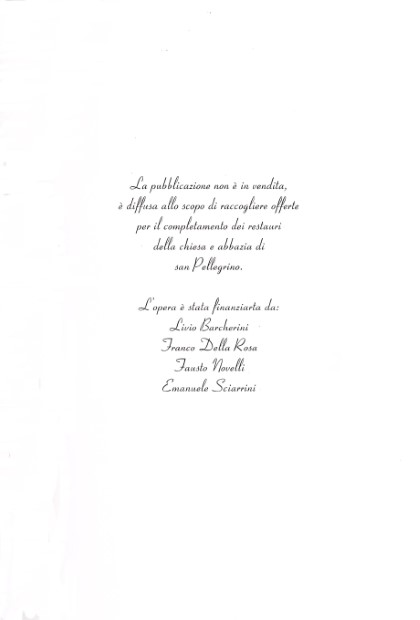 La pubblicazione non è in vendita,
è diffusa allo scopo di raccogliere offerte
per il completamento dei restauri
della chiesa e abbazia di
san Pellegrino.
L'opera è stata finanziarta da:
Livio Barcherini
Franco Della Rosa
Fausto Novelli
Emanuele Sciarrini